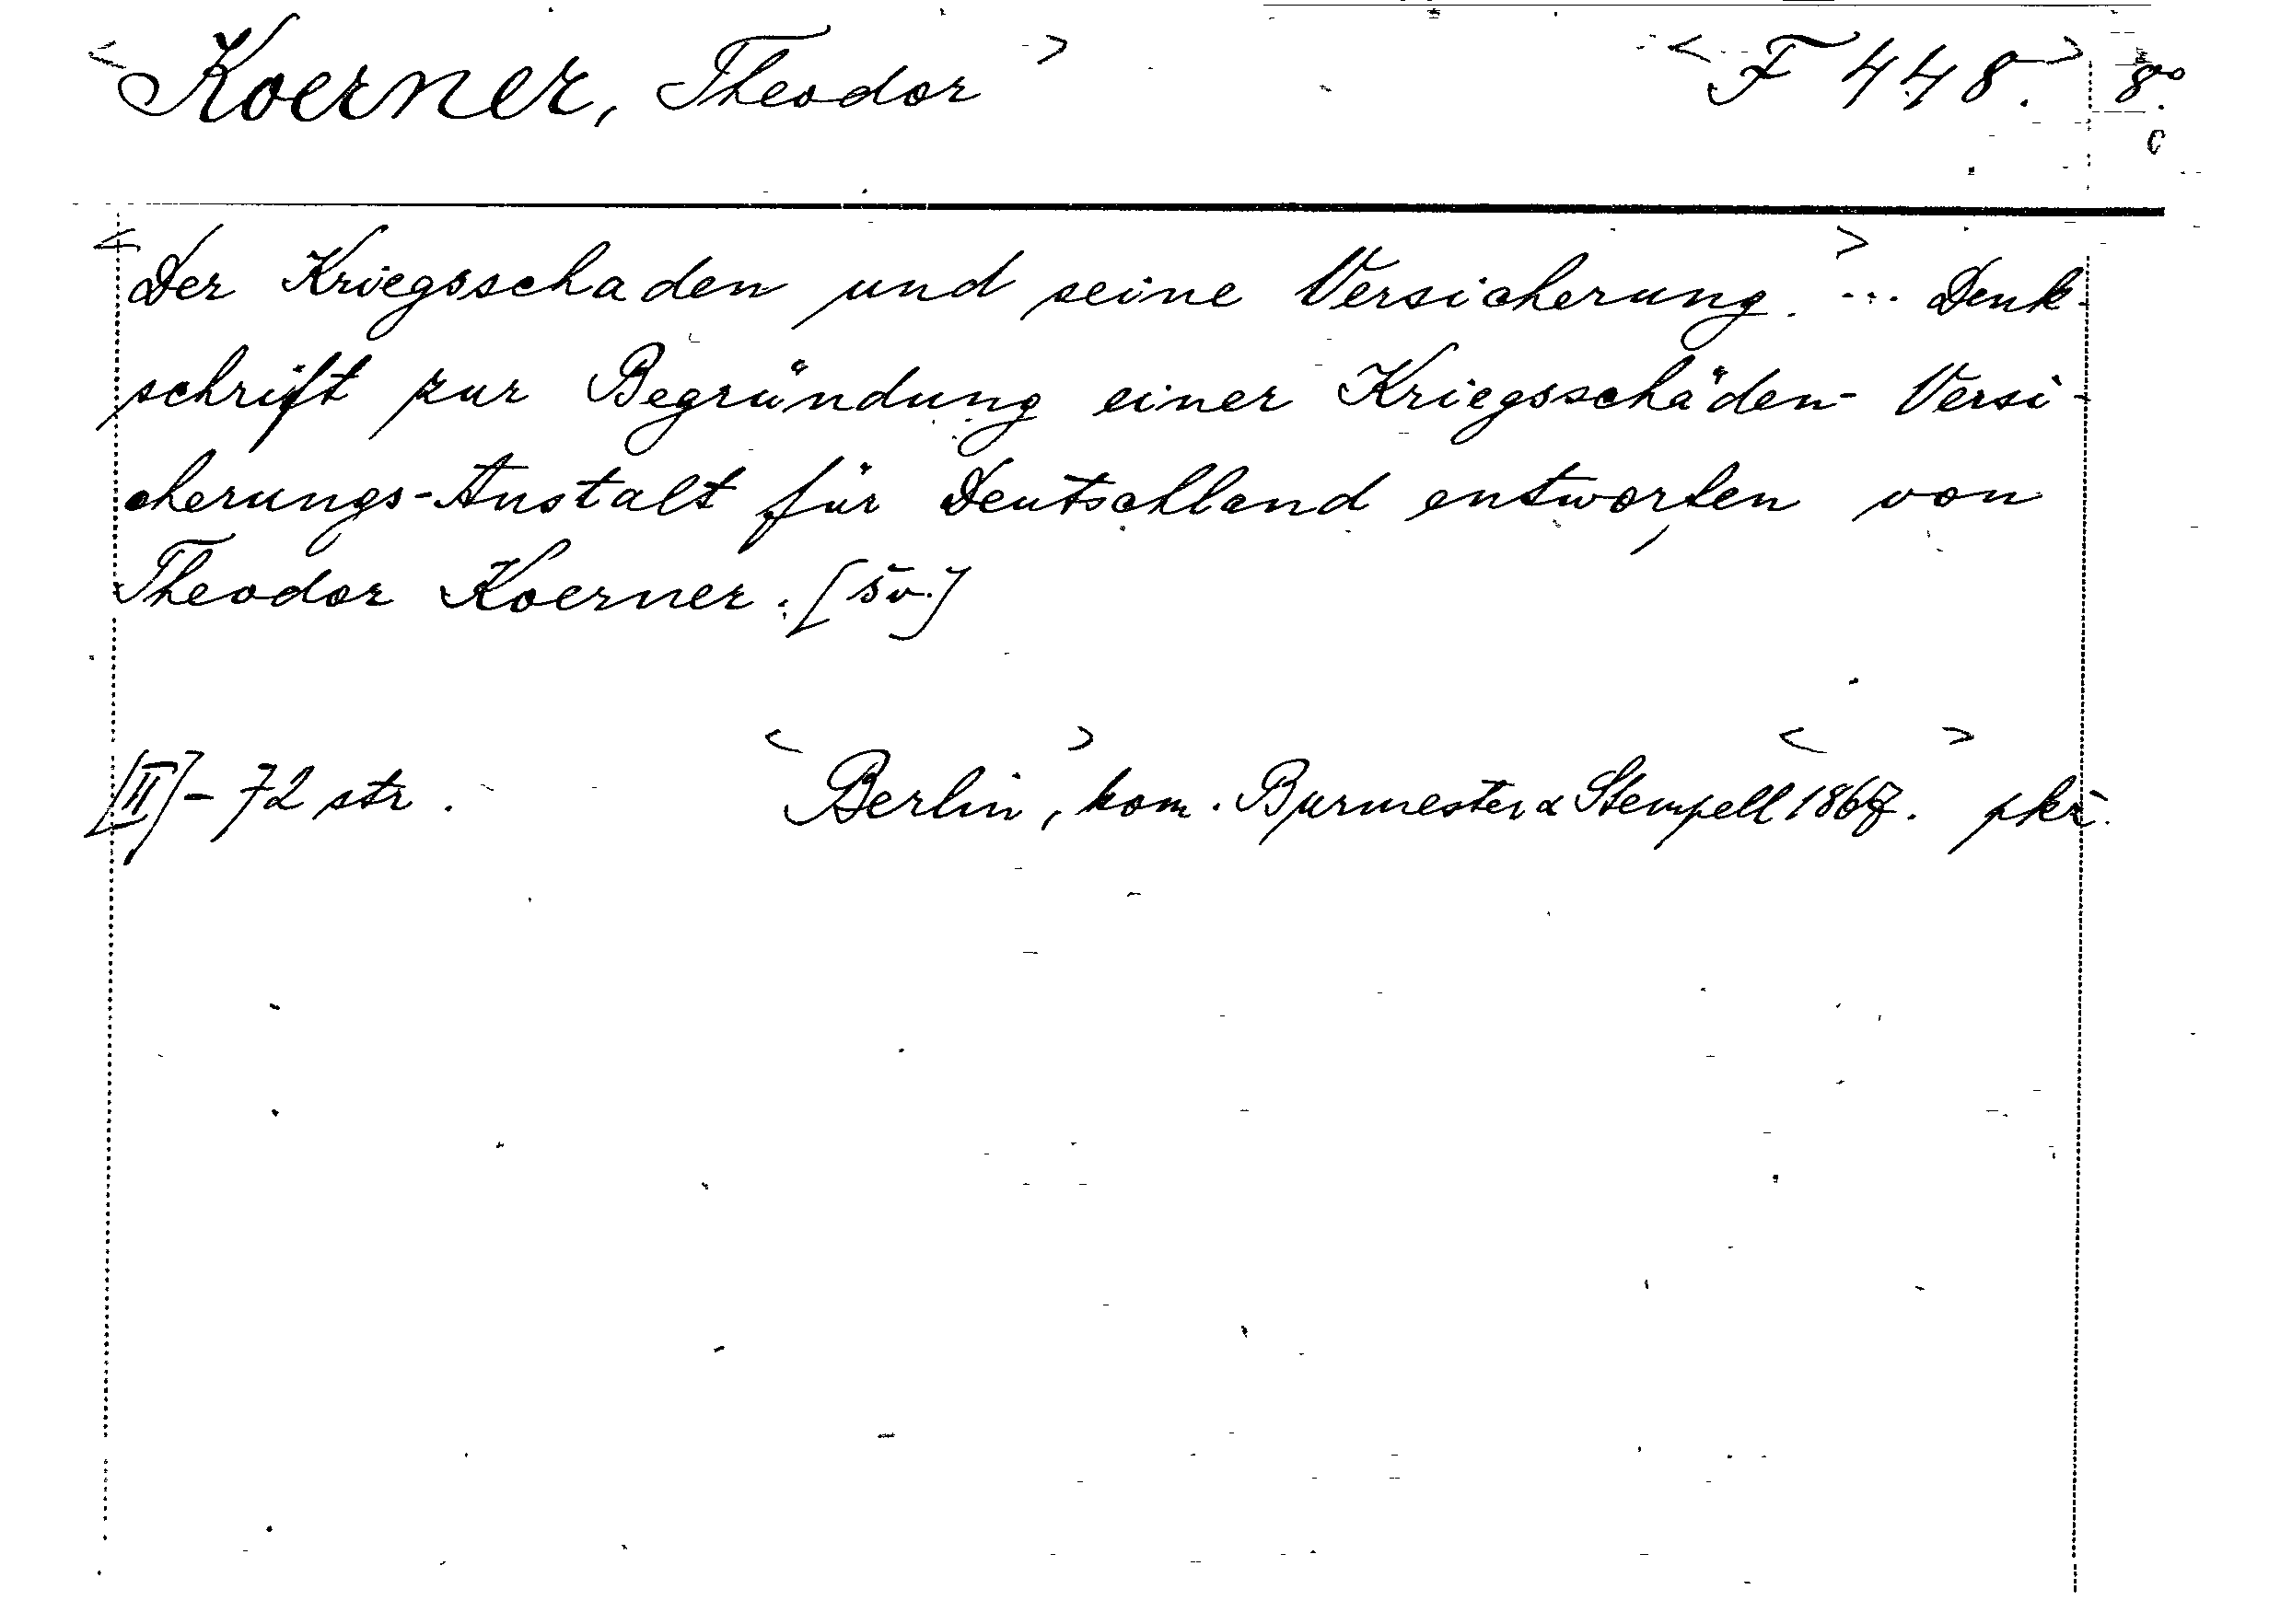 <Koerner, Theodor> <F 448.> 8.°
c
<Der Kriegsschaden und seine Versicherung.> ... Denk-
schrift zur Begründung einer Kriegsschäden-Versi-
cherungs-Anstalt für Deutschland entworfen von
Theodor Koerner. [šv.]
[II]-72 str. <Berlin>, kom. Burmester & Stempell <1867>. pkř.